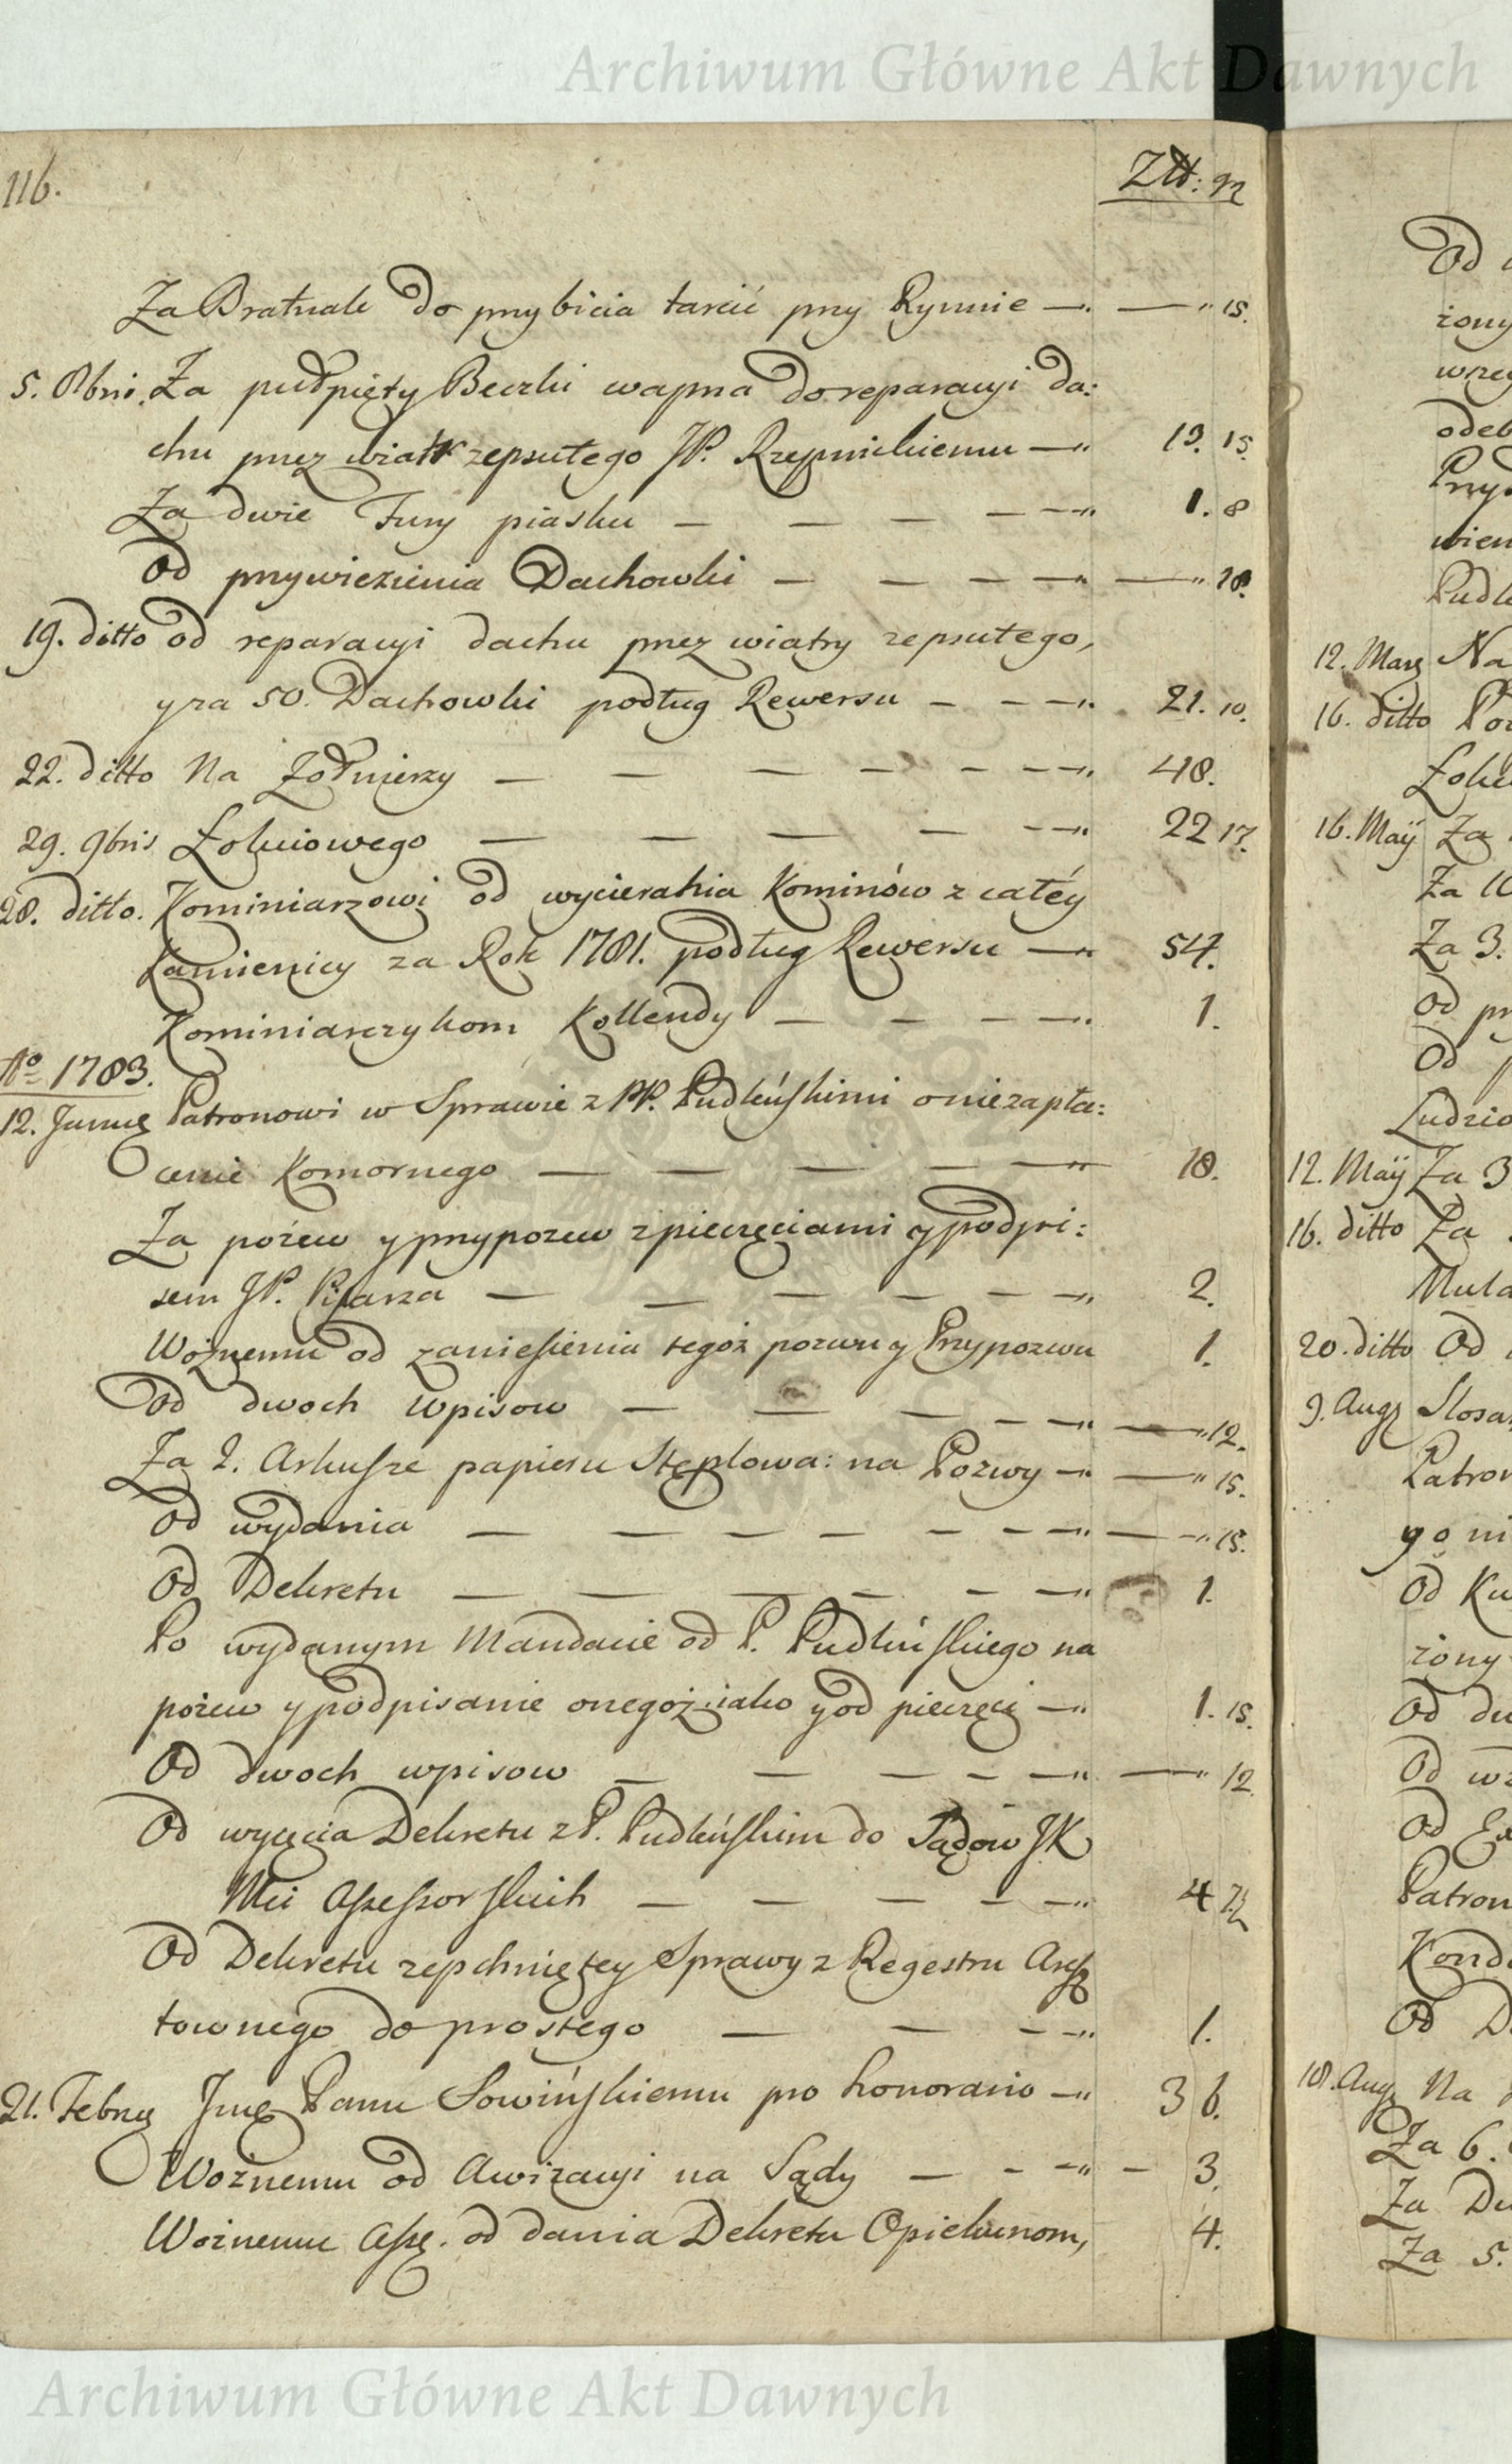 Archiwum Główne Akt Dawnych
116.
Złł: gr
Za Bratnale do przybicia tarcić przy Rynnie —" —" 15.
5. 8bris. Za pułpięty Beczki wapna do reparacyi da:
chu przez wiatr zepsutego JP. Rzepnickiemu —" 13. 15.
Za dwie Fury piasku — — — — —" 1. 8
Od przywiezienia Dachowki — — — —" —" 20.
19. ditto od reparacyi dachu przez wiatry zepsutego,
y za 50. Dachowki podług Rewersu — — —" 21. 10.
22. ditto Na Zołnierzy — — — — — —" 48.
29. 9bris Łokciowego — — — — —" 22 17.
28. ditto. Kominiarzowi od wycierania Kominów z całéy
Kamienicy za Rok 1781. podług Rewersu —" 54.
Kominiarczykom Kollendy — — — —" 1.
Aº 1783.
12. Januę Patronowi w Sprawie z PP. Pudleńskimi o niezapła:
cenie Komornego — — — — —" 18.
Za pozew y przypozew z pieczęciami y podpi:
sem JP. Pisarza — — — — — —" 2.
Woźnemu od zaniesienia tegoż pozwu y Przypozwu 1.
Od dwoch Wpisow — — — — —" —" 12.
Za 2. Arkusze papieru Stęplowa: na Pozwy —" —" 15.
Od wydania — — — — — — —" — —" 15.
Od Dekretu — — — — — —" 1.
Po wydanym Mandacie od P. Pudleńskiego na
pozew y podpisanie onegoż iako y od pieczęci —" 1. 15.
Od dwoch wpisow — — — — —" —" 12
Od wyięcia Dekretu z P. Pudleńskim do Sądow JK
Mci Assessorskich — — — — —" 4
Od Dekretu zepchniętey Sprawy z Regestru Aresz
townego do prostego — — — —" 1.
21. Febrῃ Jmę Panu Sowińskiemu pro honorario —" 36.
Woźnemu od Awizacyi na Sądy — — —" — 3.
Woźnemu Assę. od dania Dekretu Opiekunom, 4.
Od
żony
odeb
Przy
12. Marę Na
16. ditto
16. Maÿ Za
Za
Za 3.
Od
Od
Ludzio
12. Maÿ Za 3
16. ditto Za
Mula
20. ditto Od
9. Aug Slosa
Patron
żony
Od
Od
Od
Patron
Kond
Od D
18. Aug Na
Za 6.
Za
Za 5.
Archiwum Główne Akt Dawnych